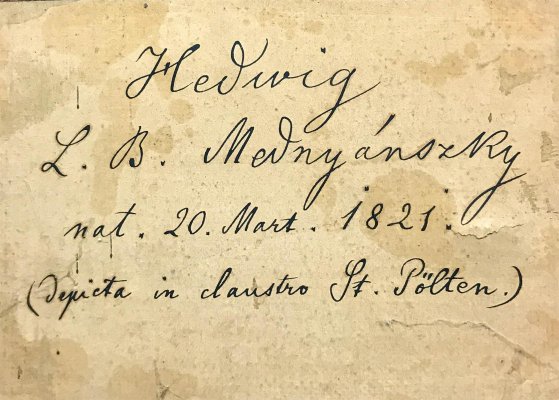 Hedwig
L. B. Mednyánszky
nat. 20. Mart. 1821.
(depicta in claustro St. Pölten.)